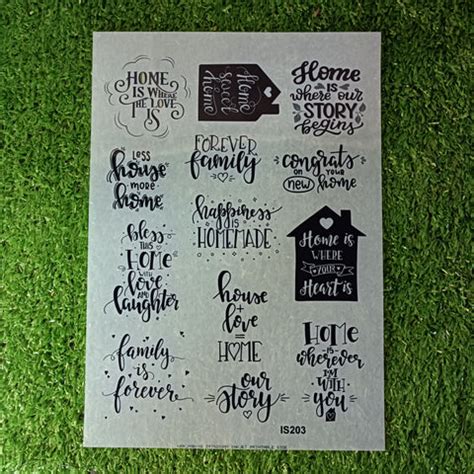 HOME
IS WHERE
THE LOVE
IS
Home
sweet
Home
Home
IS
where our
STORY
begins
LESS
house
MORE
home
FOREVER
family
congrats
ON YOUR
new home
happiness
IS
HOMEMADE
bless
THIS
HOME
WITH
love
AND
laughter
Home is
WHERE
YOUR
Heart is
house
+
love
=
HOME
HOME
IS
wherever
I'M
WITH
you
family
is
forever
our
story
IS203